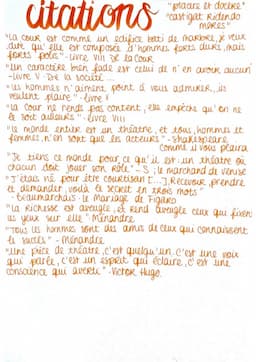 citations
"placere et docere"
"castigat ridendo mores"
"La cour est comme un édifice bâti de marbre, je veux
dire qu'elle est composée d'hommes forts durs, mais
forts polis" - Livre VIII De la Cour
"Un caractère bien fade est celui de n'en avoir aucun"
- Livre V - De la société...
"les hommes n'aiment point à vous admirer, ils
veulent plaire" - Livre V
"la cour ne rends pas content, elle empêche qu'on ne
le soit ailleurs" - Livre VIII
"le monde entier est un théâtre, et tous, hommes et
femmes, n'en sont que les acteurs" - Shakespeare
Comme il vous plaira
"Je tiens ce monde pour ce qu'il est : un théâtre où
chacun doit jouer son rôle" - S ; le marchand de Venise
"J'étais né pour être courtisan (...) Recevoir, prendre
et demander, voilà le secret en trois mots"
- Beaumarchais - Le Mariage de Figaro
"La richesse est aveugle, et rend aveugle ceux qui fixent
les yeux sur elle" Ménandre
"Tous les hommes sont des amis de ceux qui connaissent
le succès" - Ménandre
"Une pièce de théâtre, c'est quelqu'un. C'est une voix
qui parle, c'est un esprit qui éclaire, c'est une
conscience qui avertit" - Victor Hugo.